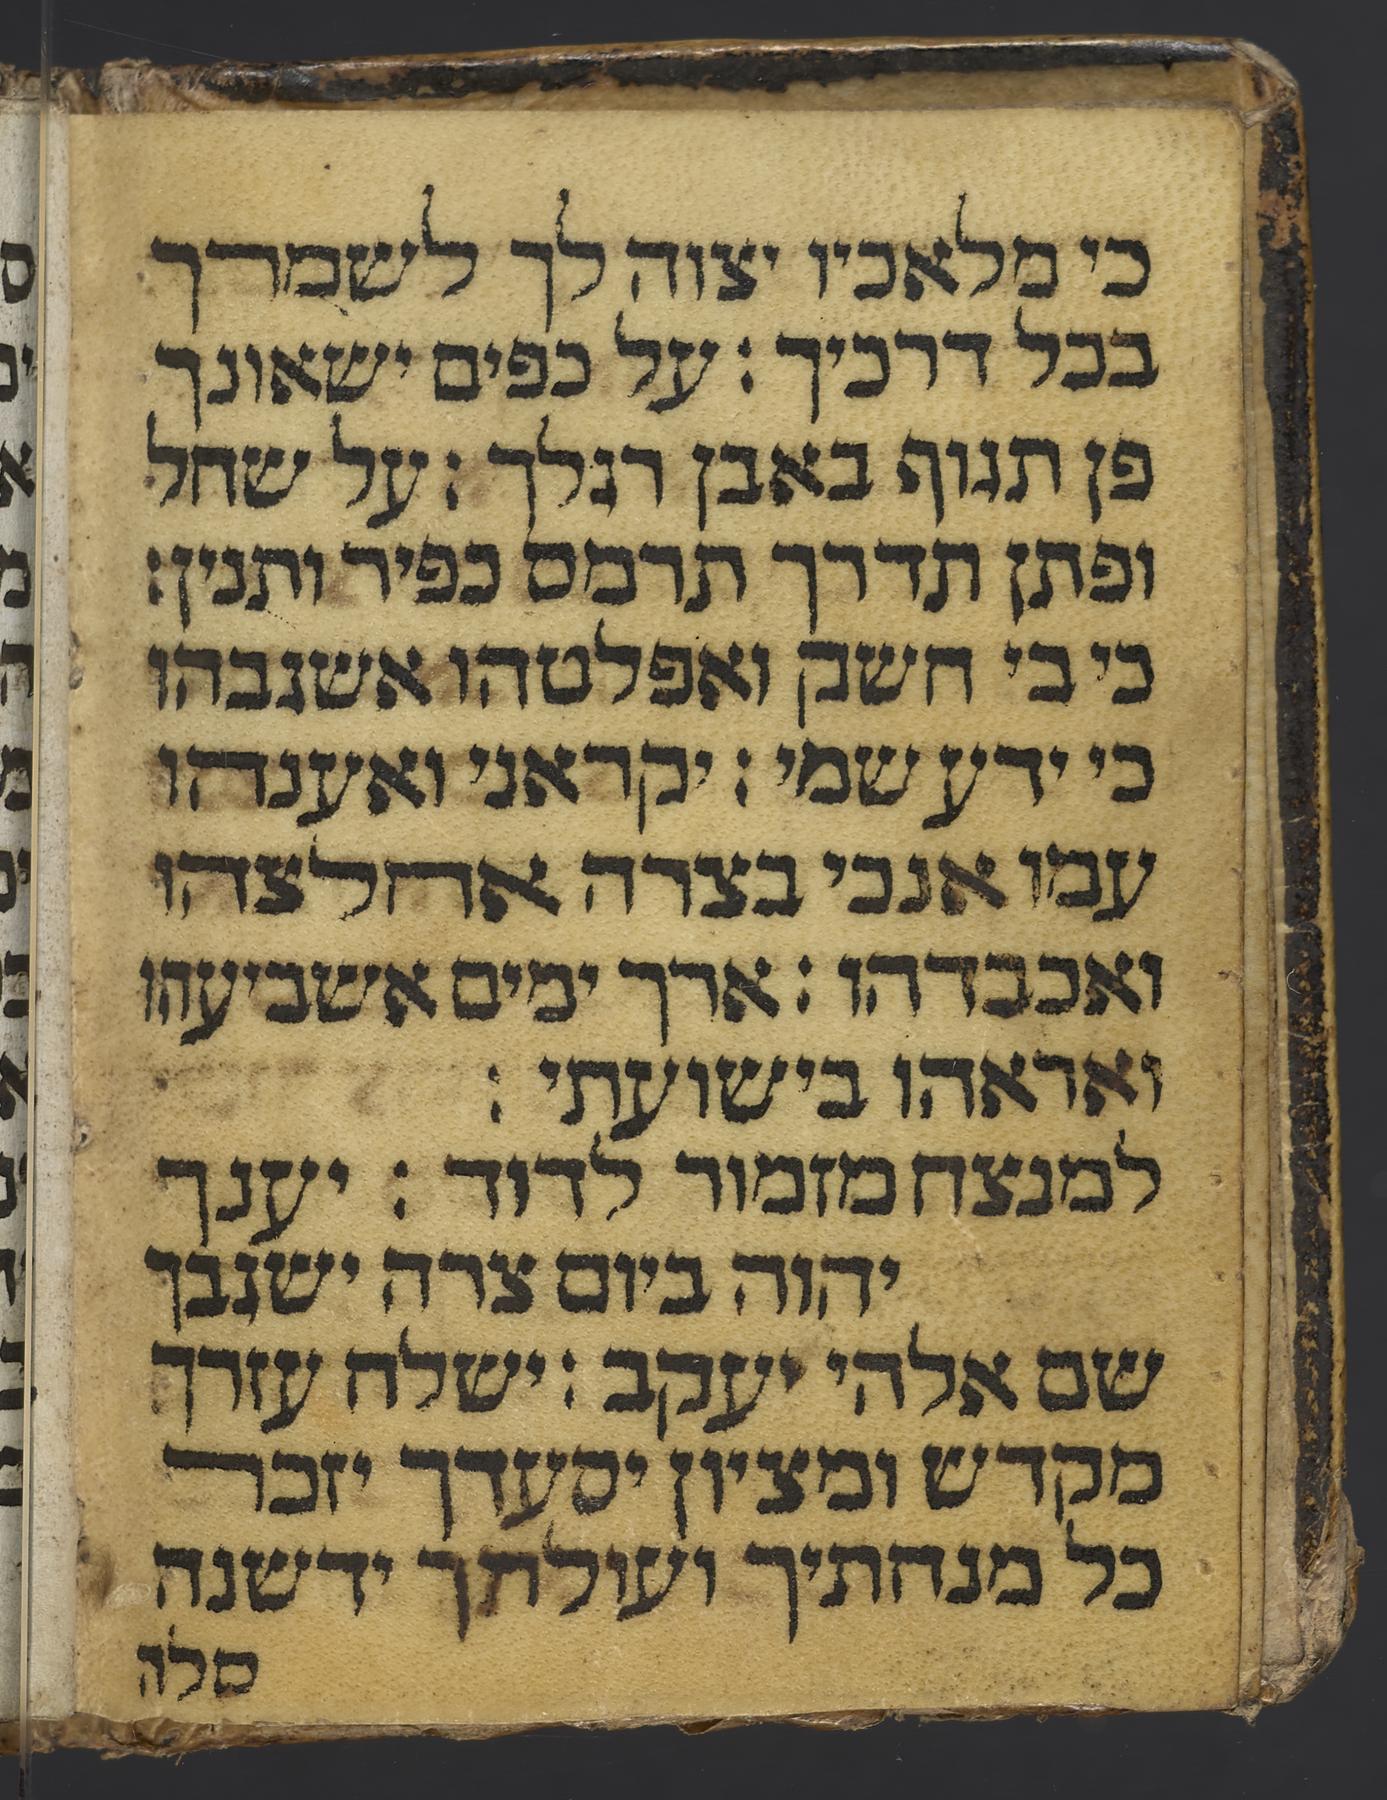 כי מלאכיו יצוה לך לשמרך
בכל דרכיך : על כפים ישאונך
פן תגוף באבן רגלך : על שחל
ופתן תדרך תרמס כפיר ותנין :
כי בי חשק ואפלטהו אשגבהו
כי ידע שמי : יקראני ואענהו
עמו אנכי בצרה אחלצהו
ואכבדהו : ארך ימים אשביעהו
ואראהו בישועתי :
למנצח מזמור לדוד : יענך
יהוה ביום צרה ישגבך
שם אלהי יעקב : ישלח עזרך
מקדש ומציון יסעדך יזכר
כל מנחתיך ועולתך ידשנה
סלה